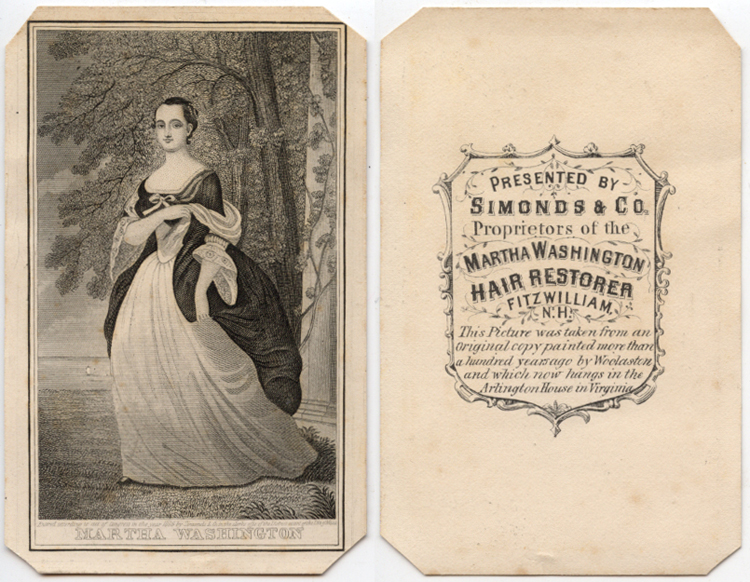 MARTHA WASHINGTON
PRESENTED BY
SIMONDS & CO.
Proprietors of the
MARTHA WASHINGTON
HAIR RESTORER
FITZWILLIAM,
N.H.
This Picture was taken from an
Original copy painted more than
a hundred years ago by Woolaston
and which now hangs in the
Arlington House in Virginia